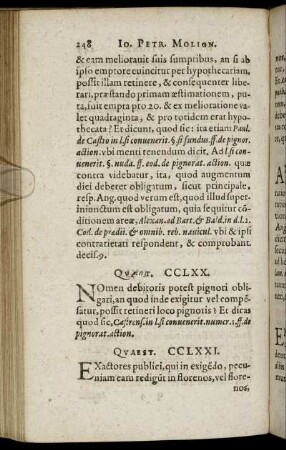 248 IO. PETR. MOLIGN.
& eam meliorauit suis sumptibus, an si ab
ipso emptore euincitur per hypothecariam,
possit illam retinere, & consequenter libe-
rari, præstando primam æstimationem, pu-
ta, fuit empta pro 20. & ex melioratione va-
let quadraginta, & pro totidem erat hypo-
thecata? Et dicunt, quod sic: ita etiam Paul.
de Castro in l. si conuenerit. § si fundus. ff. de pignor.
action. vbi menti tenendum dicit. Ad l. si con-
uenerit. § nuda. ff. eod. de pignorat. action. quæ
contra videbatur, ita, quod augmentum
diei deberet obligatum, sicut principale,
resp. Ang. quod verum est, quod illud super-
iniunctum est obligatum, quia sequitur cō-
ditionem areæ, Alexan. ad Bart. & Bald. in d. l. 2.
Cod. de prædiis. & omnib. reb. nauicul. vbi & ipsi
contrarietati respondent, & comprobant.
decis. 9.
QVÆST. CCLXX.
NOmen debitoris potest pignori obli-
gari, an quod inde exigitur vel compē-
satur, possit retineri loco pignotis? Et dicas
quod sic, Castrens. in l. si conuenerit. numer. 1. ff. de
pignorat. action.
QVAEST. CCLXXI.
EXactores publici, qui in exigēdo, pecu-
niam eam redigūt in florenos, vel flore-
nos,